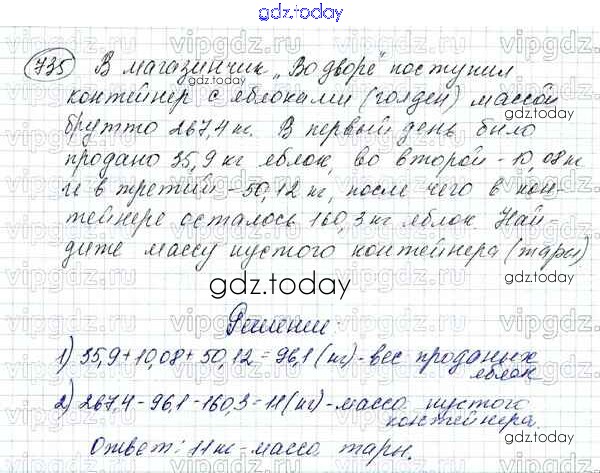 gdz.today
735 В магазинчик „Во дворе" поступил
контейнер с яблоками (голден) массой
брутто 267,4 кг. В первый день было
продано 35,9 кг яблок, во второй - 10,08 кг
и в третий - 50,12 кг, после чего в кон-
тейнере осталось 160,3 кг яблок. Най-
дите массу пустого контейнера (тары)
gdz.today
Решение:
1) 35,9 + 10,08 + 50,12 = 96,1 (кг) - вес проданых
яблок
2) 267,4 - 96,1 - 160,3 = 11 (кг) - масса пустого
контейнера.
Ответ: 11 кг - масса тары.
gdz.today